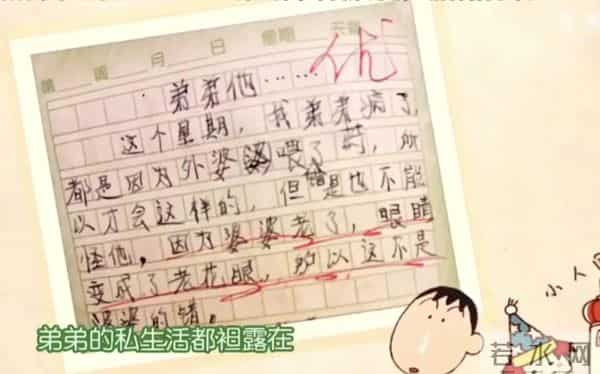 第 周 月 日 星期 天气
优
弟弟他……
这个星期，我弟弟病了，
都是因为外婆喂了药，所
以才会这样的，但错是也不能
怪他，因为婆婆老了，眼睛
变成了老花眼，所以这不是
婆婆的错。
弟弟的私生活都袒露在
小人
若水网